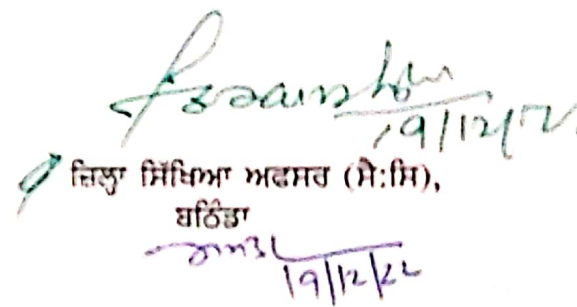 19/12/2
ਜ਼ਿਲ੍ਹਾ ਸਿੱਖਿਆ ਅਫਸਰ (ਸੈ:ਸਿ),
ਬਠਿੰਡਾ
19/12/22